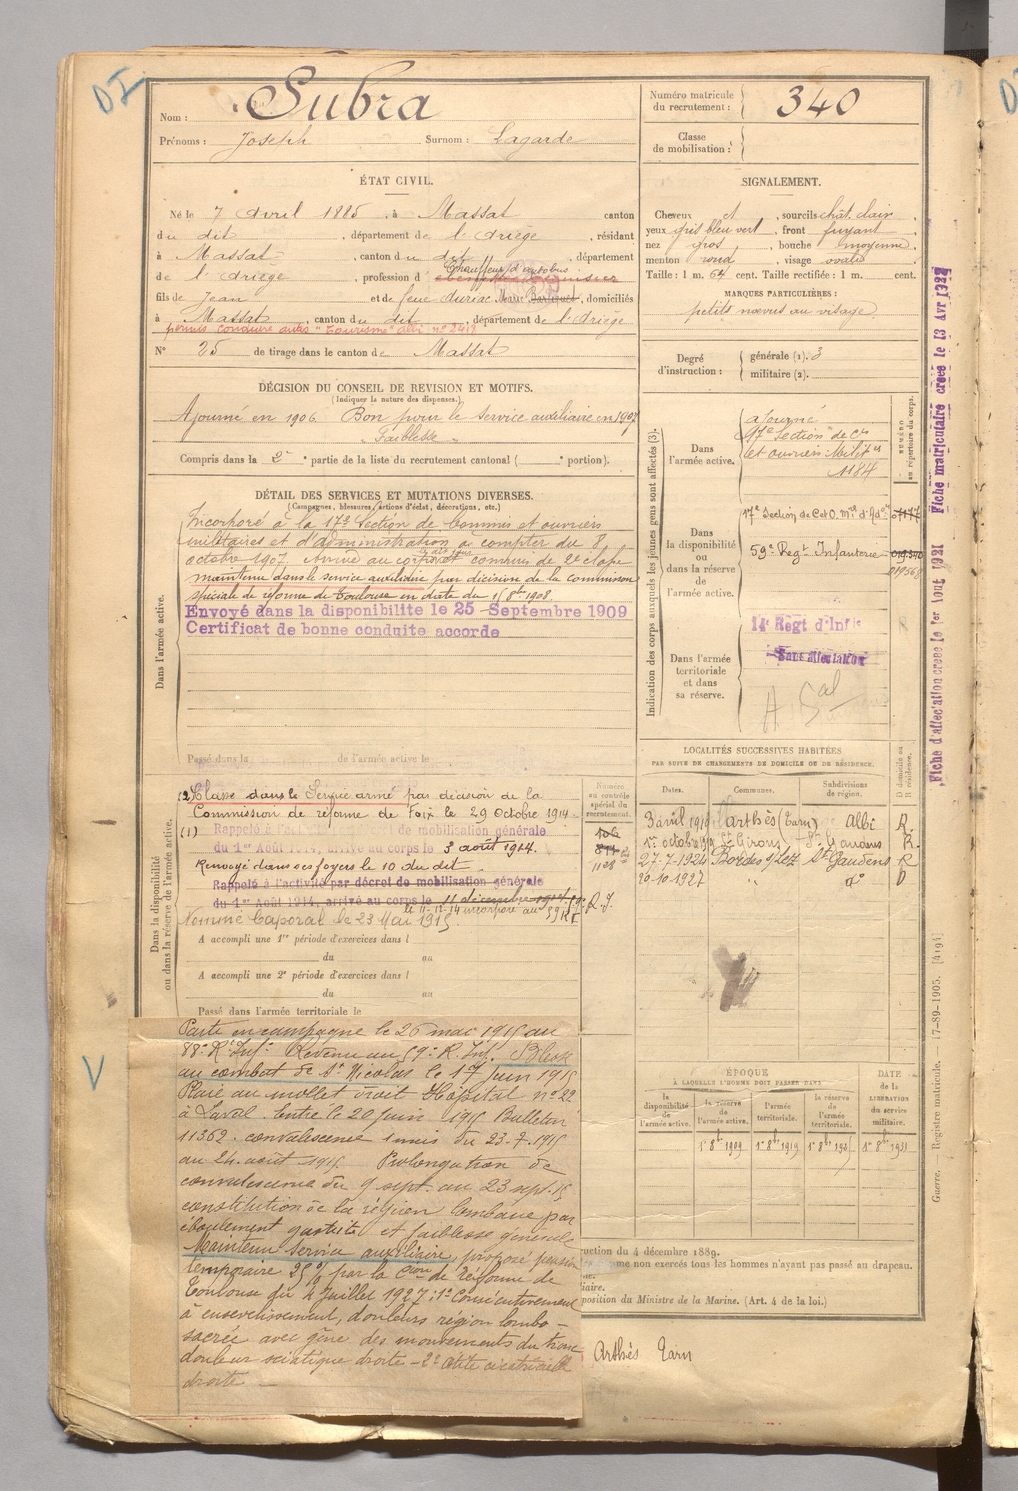 DI
Nom : Subra
Prénoms : Joseph Surnom : Lagarde
Numéro matricule du recrutement : 340
Classe de mobilisation :
ÉTAT CIVIL.
Né le 7 avril 1885, à Massat canton
du dit, département de l'Ariège, résidant
à Massat, canton du dit, département
Chauffeur d'autobus
de l'Ariège, profession d'
fils de Jean et de feue Auriac Marie, domiciliés
à Massat, canton du dit, département de l'Ariège
permis conduire autos "Tourisme" Albi n° 2419
N° 25 de tirage dans le canton de Massat
SIGNALEMENT.
Cheveux et, sourcils chât. clair,
yeux gris bleu vert, front fuyant,
nez gros, bouche moyenne,
menton rond, visage ovale.
Taille : 1 m. 64 cent. Taille rectifiée : 1 m. cent.
MARQUES PARTICULIÈRES :
petits nœvus au visage
Degré d'instruction : générale (1). 3
militaire (2).
DÉCISION DU CONSEIL DE REVISION ET MOTIFS.
(Indiquer la nature des dispenses.)
Ajourné en 1906. Bon pour le service auxiliaire en 1907
"Faiblesse"
Compris dans la 2e partie de la liste du recrutement cantonal ( e portion).
DÉTAIL DES SERVICES ET MUTATIONS DIVERSES.
(Campagnes, blessures, actions d'éclat, décorations, etc.)
Dans l'armée active.
Incorporé à la 17e Section de Commis et ouvriers
militaires et d'administration à compter du 8
octobre 1907. Arrivé au corps commis de 2e classe
maintenu dans le service auxiliaire par décision de la commission
spéciale de réforme de Toulouse en date du 1 8bre 1908.
Envoyé dans la disponibilite le 25 Septembre 1909
Certificat de bonne conduite accorde
Passé dans la de l'armée active le
Dans la disponibilité ou dans la réserve de l'armée active.
(2) Classé dans le Service armé par décision de la
Commission de réforme de Foix le 29 Octobre 1914
(1) Rappelé à l'activité de mobilisation générale
du 1er Août 1914, arrivé au corps le 3 août 1914.
Renvoyé dans ses foyers le 10 du dit
Rappelé à l'activité par décret de mobilisation générale
du 1er Août 1914, arrivé au corps le 11 décembre 1914
le 11-12-14 incorporé au 59 R.I.
Nommé Caporal le 23 Mai 1915
A accompli une 1re période d'exercices dans l
du au
A accompli une 2e période d'exercices dans l
du au
Passé dans l'armée territoriale le
Parti en campagne le 26 mai 1915 au
88e Rt Inf. Revenu au 59e R. Inf. Blessé
au combat de St Nicolas le 17 juin 1915
Plaie au mollet droit Hôpital n° 22
à Laval. Entré le 20 Juin 1915 Bulletin
11362. convalescence 1 mois du 23-7-1915
au 24 août 1915. Prolongation de
convalescence du 9 sept. au 23 sept. 15
constitution de la région lombaire par
éboulement gastrite et faiblesse générale
Maintenu Service auxiliaire, proposé pension
temporaire 25% par la Cion de Réforme de
Toulouse du 4 Juillet 1927 : 1° Consécutivement
à ensevelissement, douleurs région lombo-
sacrée avec gêne des mouvements du tronc
douleur sciatique droite - 2° otite cicatricielle
droite
V
Indication des corps auxquels les jeunes gens sont affectés (3).
NUMÉRO au répertoire du corps.
Dans l'armée active.
ajourné
17e Section de Cis
et ouvriers Militres
1184
Dans la disponibilité ou dans la réserve de l'armée active.
17e Section de C et O. Mres d'Adon
59e Regt Infanterie
Dans l'armée territoriale et dans sa réserve.
14e Regt d'Infie
Sans affectation
Fiche d'affectation creee le 1er Aout 1921 Fiche matriculaire creee le 13 Avr 1922
LOCALITÉS SUCCESSIVES HABITÉES
PAR SUITE DE CHANGEMENTS DE DOMICILE OU DE RÉSIDENCE.
Numéro au contrôle spécial du recrutement.
Dates. Communes. Subdivisions de région. D domicile ou R résidence.
3 avril 1919 Arthès (Tarn) Albi R.
1er octobre 1919 St Girons St Gaudens R.
27-7-1924 Bordes s/Lez St Gaudens R
20-10-1927 " do D
1128
ÉPOQUE
À LAQUELLE L'HOMME DOIT PASSER DANS
DATE de la LIBÉRATION du service militaire.
la disponibilité de l'armée active. la réserve de l'armée active. l'armée territoriale. la réserve de l'armée territoriale.
1er 8bre 1909 1er 8bre 1919 1er 8bre 1925 1er 8bre 1931
uction du 4 décembre 1889.
me non exercés tous les hommes n'ayant pas passé au drapeau.
iaire.
position du Ministre de la Marine. (Art. 4 de la loi.)
Guerre. — Registre matricule. — 17-89-1905. [4194]
Arthès Tarn